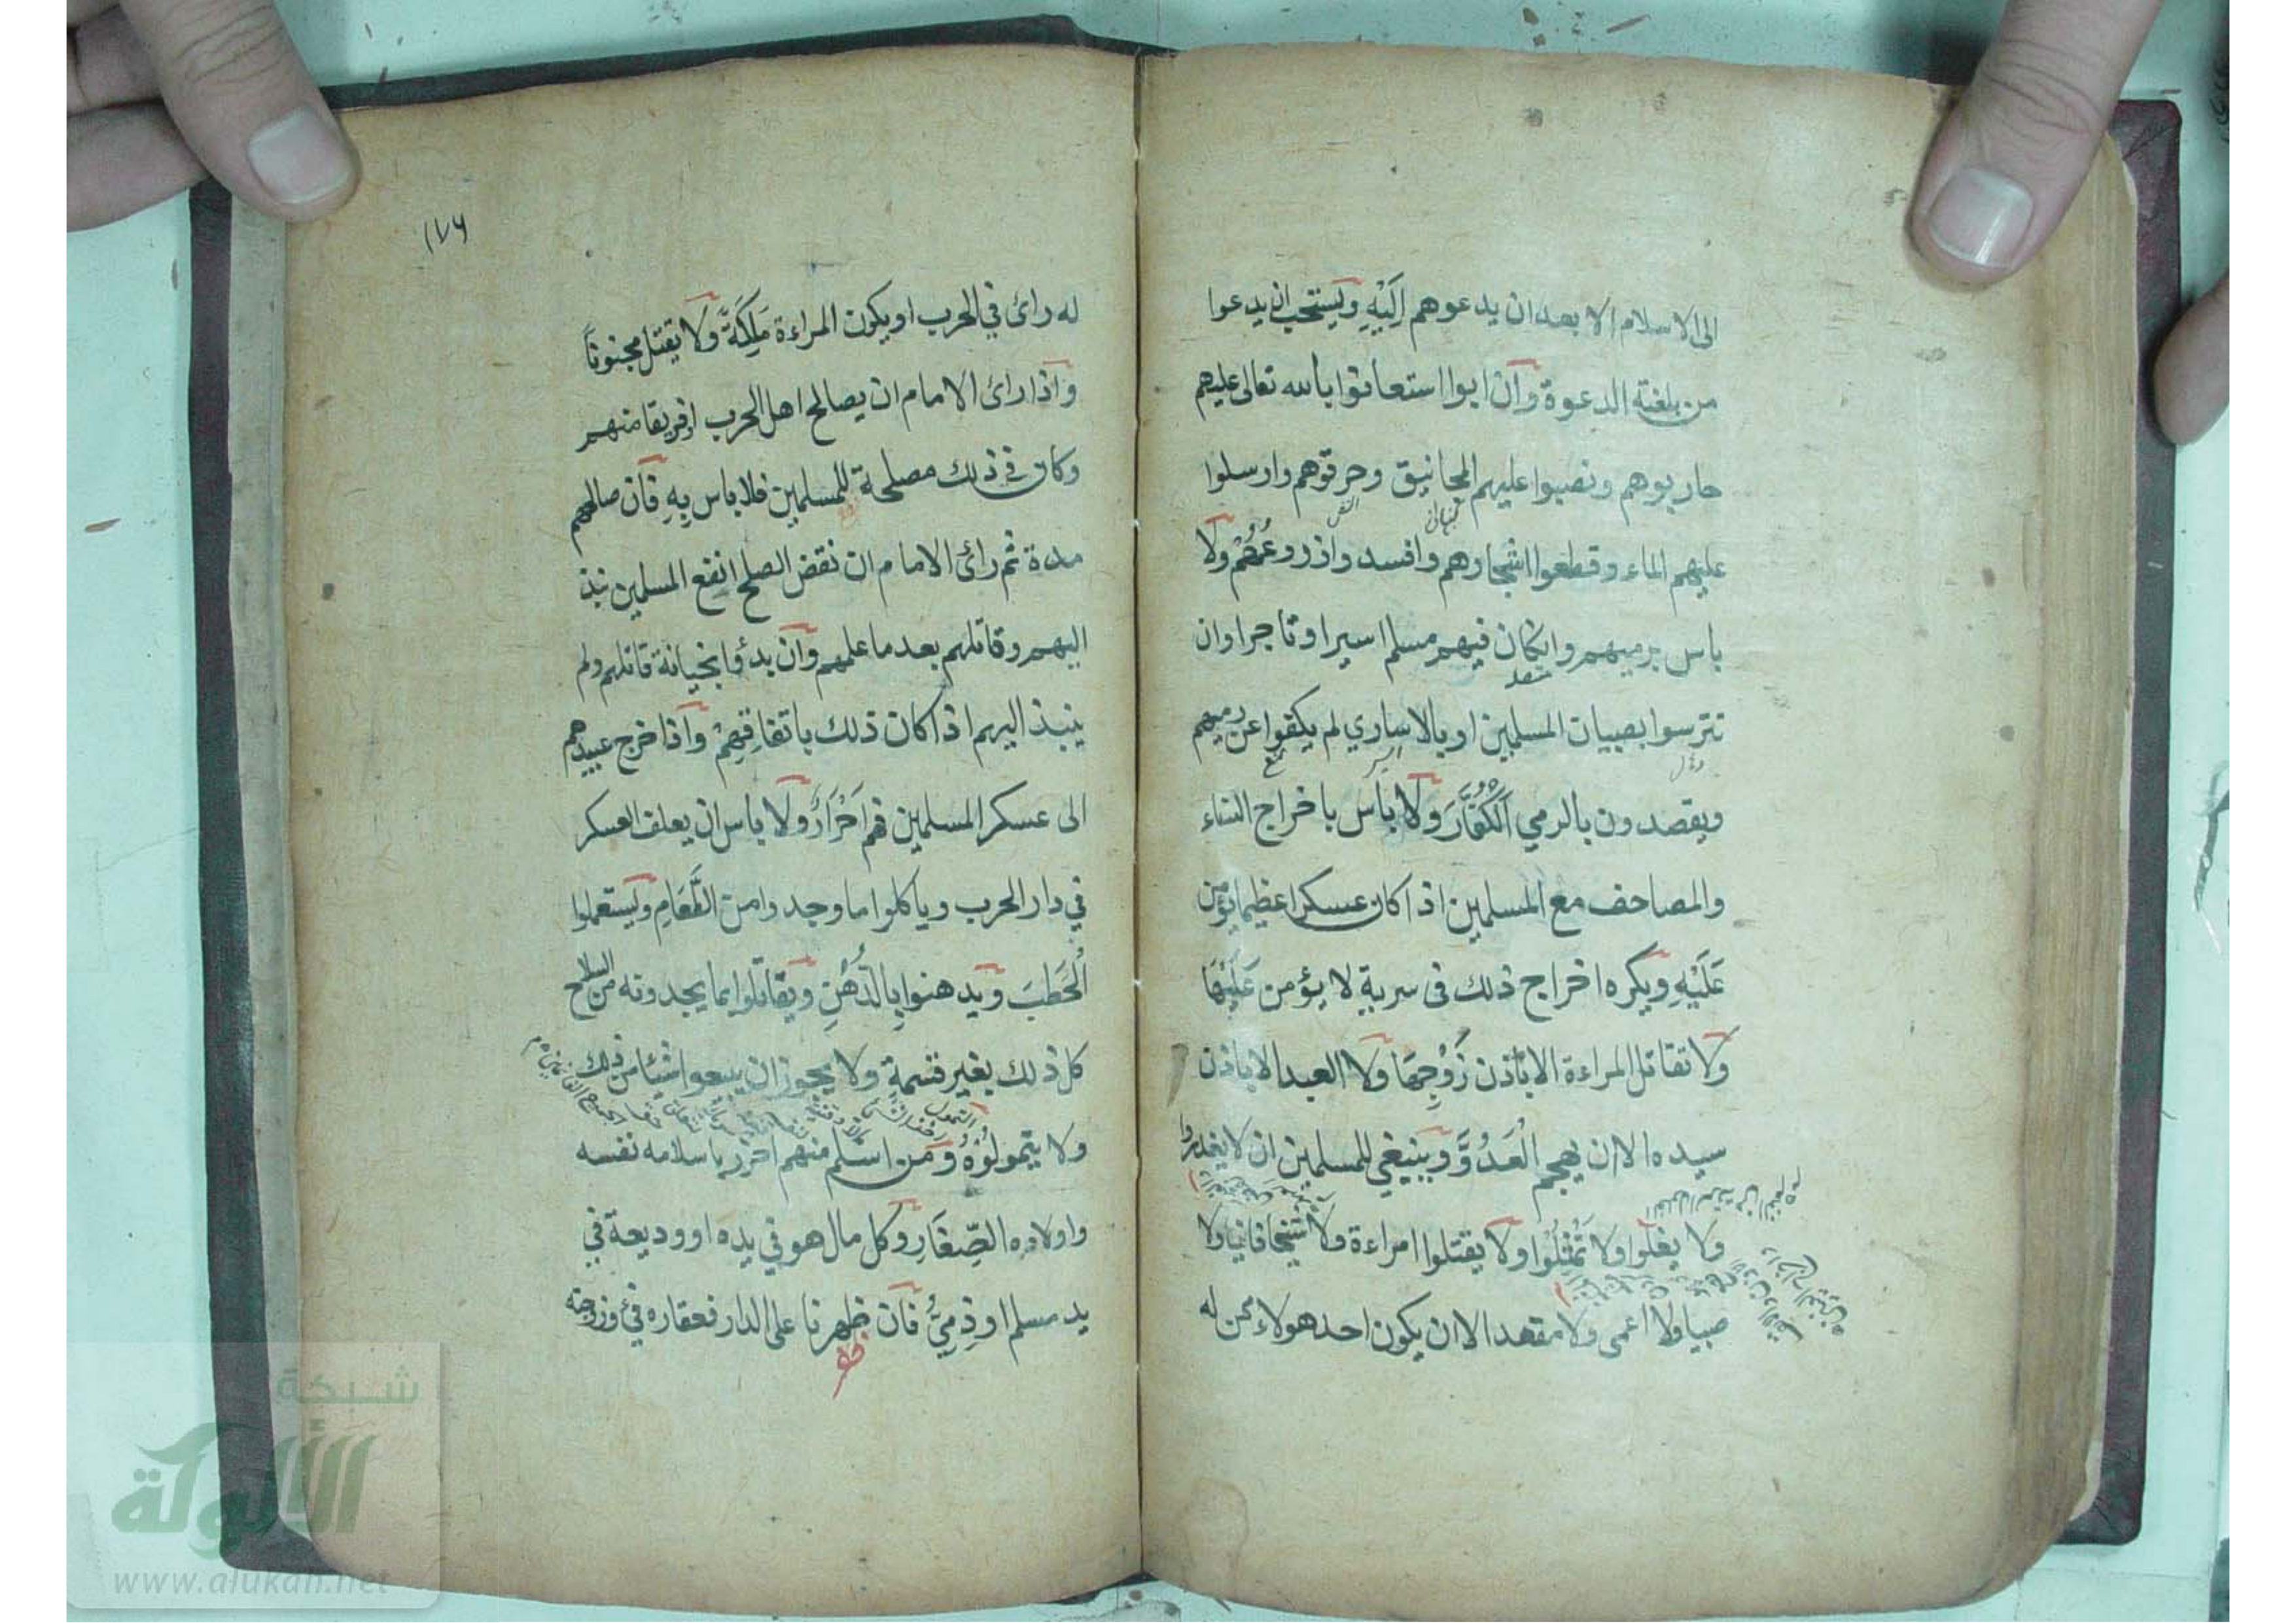 الى الاسلام الا بعد ان يدعوهم اِلَيْهِ ويستحب ان يدعوا
من بلغته الدعوة وان ابوا استعانوا بالله تعالى عليهم
حاربوهم ونصبوا عليهم المجانيق وحرقوهم وارسلوا
عليهم الماء وقطعوا اشجارهم وافسدوا زروعَهُمْ ولا
باس برميهم وان كان فيهم مسلما اسيرا او تاجرا وان
تترسوا بصبيان المسلمين او بالاساري لم يكفوا عن رميهم
ويقصدون بالرمي الْكُفَّارَ ولا باس باخراج النساء
والمصاحف مع المسلمين اذا كان عسكرا عظيما يؤمن
عَلَيْهِ ويكره اخراج ذلك فى سرية لا يؤمن عَلَيْهَا
ولا تقاتل المراءة الا باذن زَوْجِهَا ولا العبد الا باذن
سيده الا ان يهجم الْعَدُوَّ وينبغي للمسلمين ان لا يغدروا
ولا يغلوا ولا تُمثِلُوا ولا يقتلوا امراءة ولا شيخا فانيا ولا
صبيا ولا اعمى ولا مقعدا الا ان يكون احد هولاء ممن له
١٧٦
له رائ في الحرب او يكون المراءة مَلِكَةً ولا يقتل مجنوناً
واذا رائ الامام ان يصالح اهل الحرب او فريقا منهم
وكان في ذلك مصلحة للمسلمين فلا باس بِهِ فان صالحهم
مدة ثم رائ الامام ان نقض الصلح انفع المسلمين نبذ
اليهم وقاتلهم بعد ما علمهم وان بدؤا بخيانة قاتلهم ولم
ينبذ اليهم اذا كان ذلك باتفاقِهِمْ واذا خرج عبيدهم
الى عسكر المسلمين فهم اَحْرَارٌ ولا باس ان يعلف العسكر
في دار الحرب وياكلوا ما وجدوا من الطَّعَامِ ويستعملوا
الْحَطَبَ ويدهنوا بِالدُّهْنِ ويقاتلوا بما يجدونه من السلاح
كل ذلك بغير قسمةٍ ولا يجوز ان يبيعوا شيئا من ذلك
ولا يتمولُوْهُ وَمَن اسلم منهم احرز باسلامه نفسه
واولاده الصِّغَارِ وكل مال هو في يده او وديعة في
يد مسلم او ذِمِيٍّ فان ظهرنا على الدار فعقاره فئ وزوجته
شبكة
الألوكة
www.alukah.net